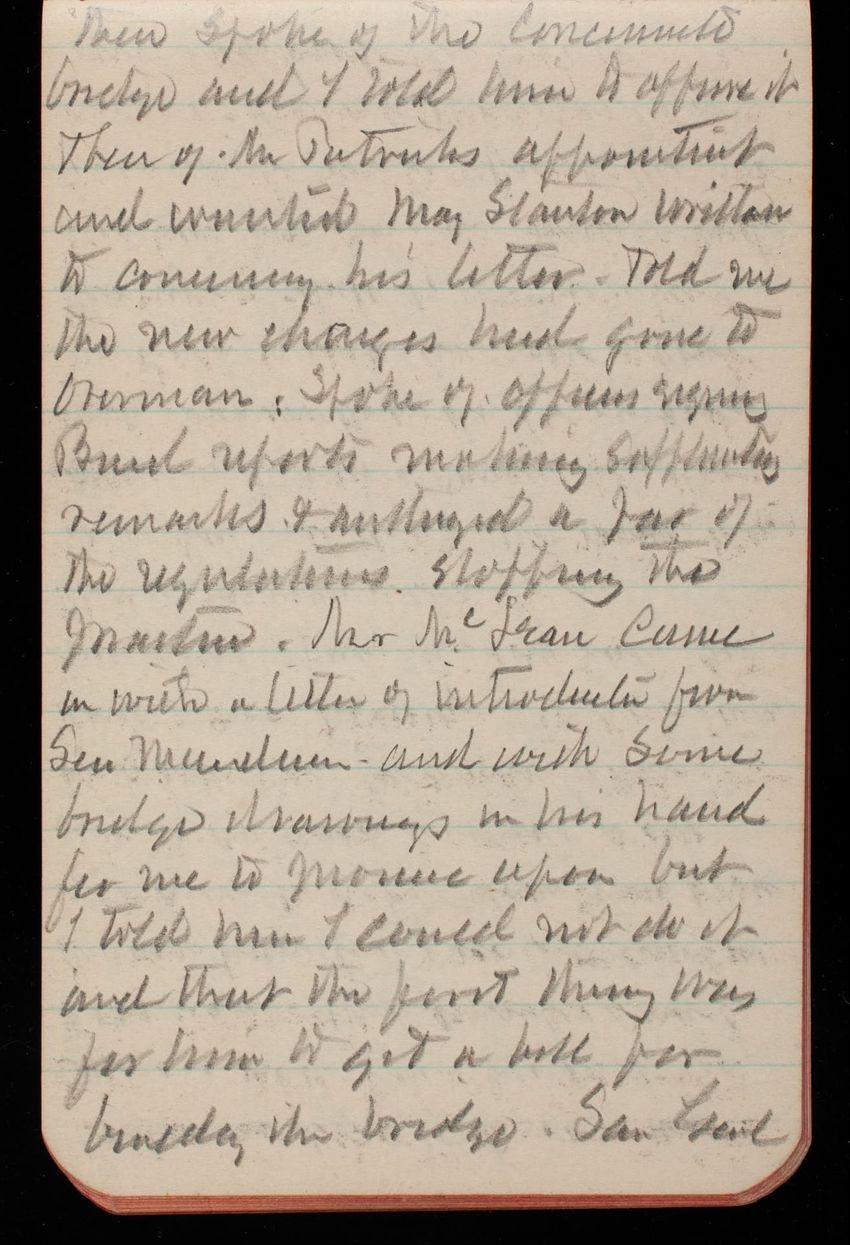 Then Spoke of the Cincinnati
bridge and I told him to approve it
Then of Mr Patricks appointment
and wanted Maj Stanton written
to concerning his letter. Told me
the new charges had gone to
Overman. Spoke of officers signing
Board reports making
remarks & authorized a par of
the regulations stopping the
practice. Mr McLean came
in with a letter of introduction from
Sen Manderson and with some
bridge drawings in his hand
for me to upon but
I told him I could not do it
and that the first thing was
for him to get a bill for
building the bridge. Saw